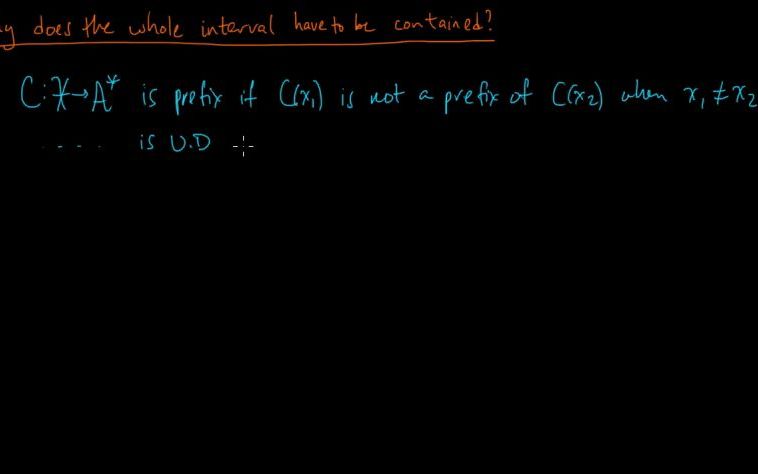 y does the whole interval have to be contained?
C: X → A* is prefix if C(x₁) is not a prefix of C(x₂) when x₁ ≠ x₂
.... is U.D